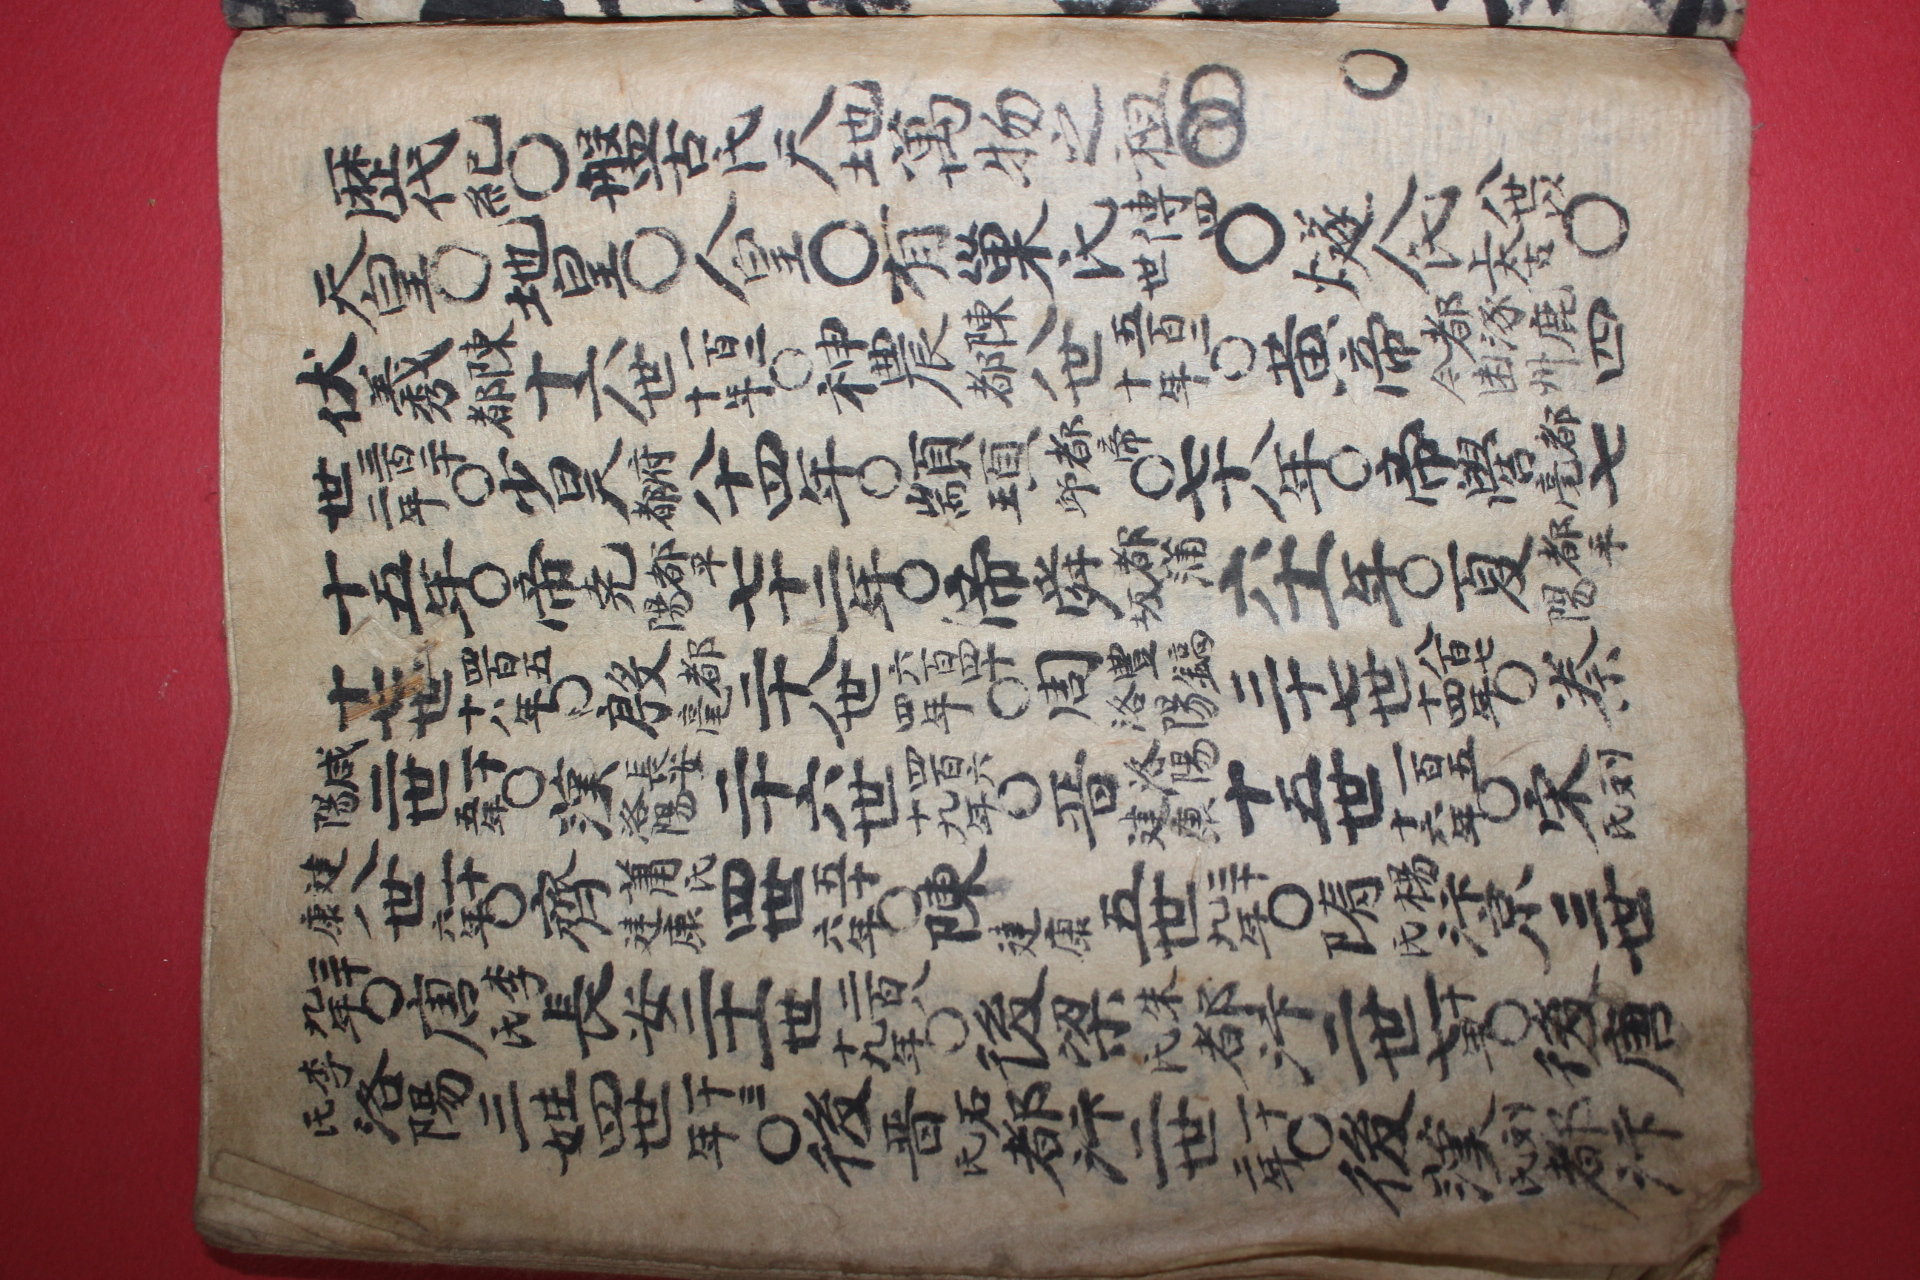 歷代紀〇盤古氏天地萬物之祖〇〇
天皇〇地皇〇人皇〇有巢氏傳四世〇燧人氏八世以上太古〇
伏羲陳都十六八世一百二十年〇神農陳都八世五百二十年〇黃帝都涿鹿今州四
世三百二十二年〇少昊都府八十四年〇顓頊都帝邱〇七十八年〇帝嚳都亳七
十五年〇帝堯都平陽七十二年〇帝舜都蒲坂六十一年〇夏都平陽
十七世四百五十八年〇殷都亳二十八世六百四十四年〇周豊鎬洛陽三十七世八百七十四年〇秦
咸陽二世一十五年〇漢長安洛陽二十六世四百六十九年〇晋洛陽建康十五世一百五十六年〇宋刘氏
建康八世六十六年〇齊蕭氏建康四世五十六年〇陳建康五世三十九年〇隋楊氏汴京三世
三十九年〇唐李氏長安二十世二百八十九年〇後梁朱氏都汴二世一十七年〇後唐
李氏洛陽三姓四世一十三年〇後晋石氏都汴二世一十二年〇後漢刘氏都汴